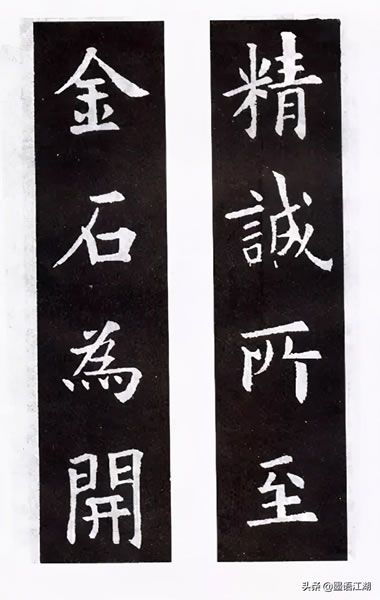 精誠所至
金石為開
头条 @墨语江湖